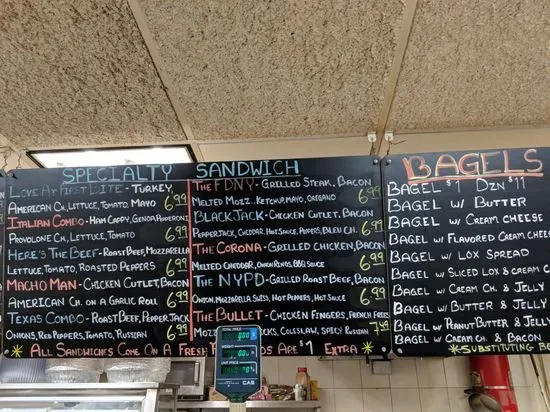 SPECIALTY SANDWICH
LOVE AT FIRST BITE - TURKEY,
AMERICAN CH, LETTUCE, TOMATO, MAYO 6.99
ITALIAN COMBO - HAM CAPPY, GENOA, PEPPERONI
PROVOLONE CH, LETTUCE, TOMATO 6.99
HERE'S THE BEEF - ROAST BEEF, MOZZARELLA
LETTUCE, TOMATO, ROASTED PEPPERS 6.99
MACHO MAN - CHICKEN CUTLET, BACON
AMERICAN CH. ON A GARLIC ROLL 6.99
TEXAS COMBO - ROAST BEEF, PEPPER JACK
ONIONS, RED PEPPERS, TOMATO, RUSSIAN 6.99
THE FDNY - GRILLED STEAK, BACON
MELTED MOZZ., KETCHUP, MAYO, OREGANO 6.99
BLACKJACK - CHICKEN CUTLET, BACON
PEPPERJACK, CHEDDAR, HOT SAUCE, PEPPERS, BLEU CH. 6.99
THE CORONA - GRILLED CHICKEN, BACON
MELTED CHEDDAR, ONION RINGS, BBQ SAUCE 6.99
THE NYPD - GRILLED ROAST BEEF, BACON
ONION, MOZZARELLA, SWISS, HOT PEPPERS, HOT SAUCE 6.99
THE BULLET - CHICKEN FINGERS, FRENCH FRIES
MOZZ STICKS, COLESLAW, SPICY RUSSIAN 7.49
* ALL SANDWICHES COME ON A FRESH $1 EXTRA *
BAGELS
BAGEL $1 DZN $11
BAGEL W/ BUTTER
BAGEL W/ CREAM CHEESE
BAGEL W/ FLAVORED CREAM CHEE
BAGEL W/ LOX SPREAD
BAGEL W/ SLICED LOX & CREAM C
BAGEL W/ CREAM CH. & JELLY
BAGEL W/ BUTTER & JELLY
BAGEL W/ PEANUT BUTTER & JELLY
BAGEL W/ CREAM CH. & BACON
*SUBSTITUTING BE
TOTAL PRICE
UNIT PRICE
CAS